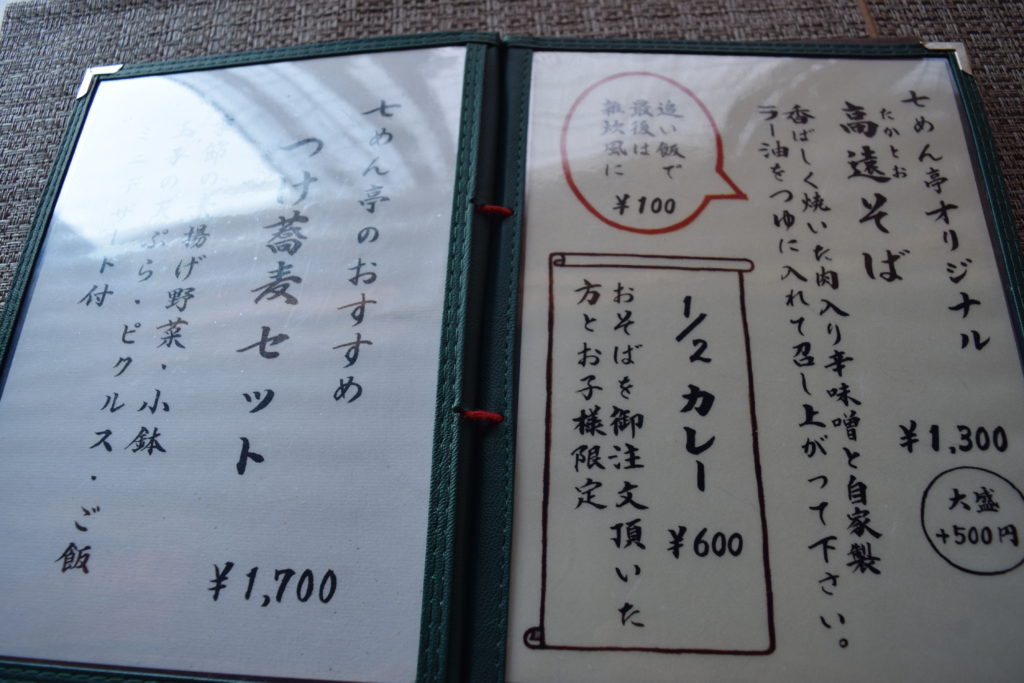 七めん亭オリジナル
たかとお
高遠そば
¥1,300
大盛
+500円
香ばしく焼いた肉入り辛味噌と自家製
ラー油をつゆに入れて召し上がって下さい。
追い飯で
最後は
雑炊風に
¥100
1/2カレー
¥600
おそばを御注文頂いた
方とお子様限定
七めん亭のおすすめ
つけ蕎麦セット
¥1,700
節の 揚げ野菜・小鉢
の天ぷら・ピクルス・ご飯
ミニデザート付